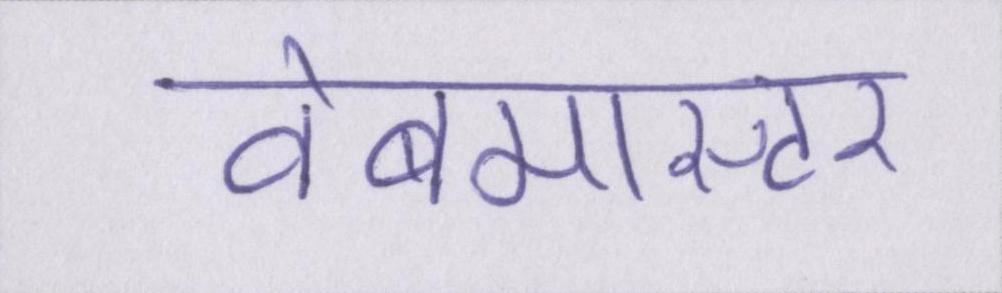 वेबमास्टर